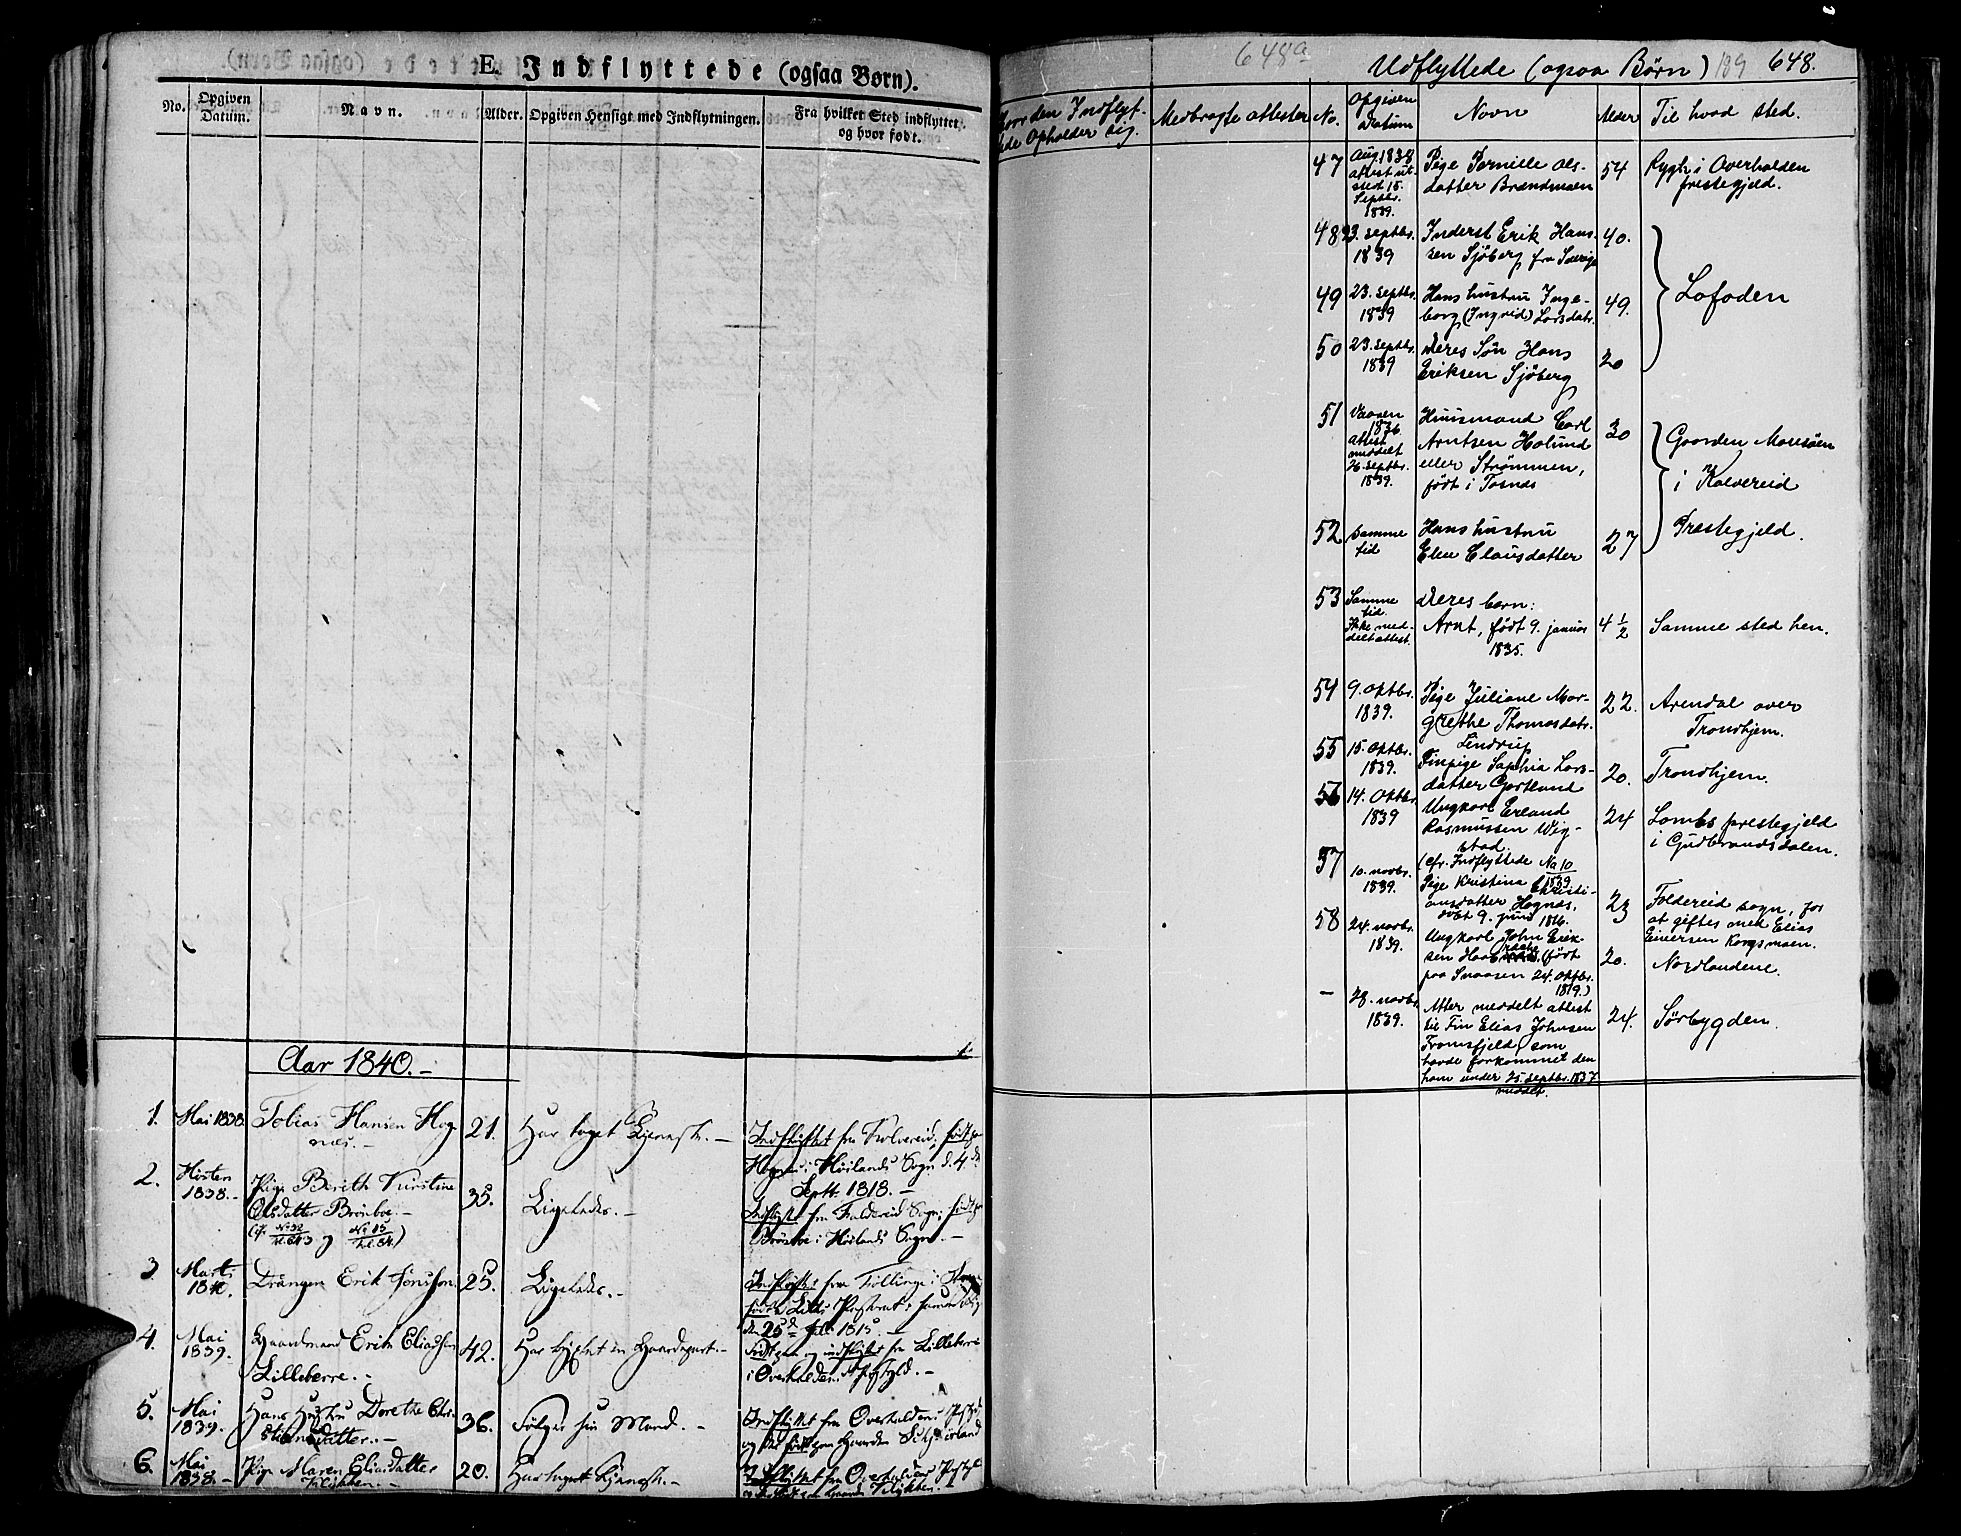 E. Indflyttede (ogsaa Børn).
No.
Opgiven
Datum.
Navn.
Alder.
Opgiven Hensigt med Indflytningen.
Fra hvilket Sted indflyttet,
og hvor født.
Aar 1840.-
1.
Mai 1838.
Tobias Hansen Hog-
næs.-
21.
Har taget Tjeneste.-
Indflyttet fra Kolvereid, født paa
Hognæs i Høilands Sogn d. 4de
Septb. 1818.-
2.
Høsten
1838.-
Pige Berith Kirstine
Olsdatter Brønboe.-
35.
Ligeledes.-
Indflyttet fra Foldereid Sogn, født paa
i Høilands Sogn.-
3.
Marts
Drængen Erik Jonsson
25.
Ligeledes.-
Indflyttet fra Føllinge i
den 25de Juli 1815.-
4.
Mai
1839.
Gaardmand Erik Eliassen
Lilleberre.-
42.
Har kjøbt en Gaardepart.-
født paa og indflyttet fra Lilleberre
i Overhaldens Præstgjeld.-
5.
Mai
1839.
Hans Hustru Dorethe Chri-
stiansdatter.-
36.
Følger sin Mand.-
Indflyttet fra Overhaldens Præstgj.
og der født paa Gaarden
6.
Mai
1838.-
Pige Maren Eliasdatter
20.
Har taget Tjeneste.-
Indflyttet fra Overhaldens Præstgj.
648a
Udflyttede (ogsaa Børn) 189 648.
Hvor den Indflyt-
tede Opholder sig.
Medbragte attester
No.
Opgiven
Datum
Navn
Alder
Til hvad sted.
47
Aug. 1838
attest ut-
sted 15.
Septbr.
1839.
Pige Pernille Ols-
datter Brændmoen
54
Rygh i Overhalden
prestegjeld.
48
23. septbr.
1839
Inderst Erik Hans-
sen Sjöberg fra Sverige
40.
Lofoden
49
23. septbr.
1839
Hans hustru Inge-
borg (Ingrid) Larsdatr.
49.
50
23. septbr.
1839
Deres Søn Hans
Eriksen Sjöberg
20
51
Vaaren
1836
attest
meddelt
26. septbr.
1839.
Huusmand Carl
Arntsen Holund
eller Strømmen,
født i Fosnæs
30
Gaarden Maresøen
i Kolvereid
Prestegjeld.
52
Samme
tid
Hans hustru
Elen Clausdatter
27
53
Samme
tid.
Ikke med-
delt attest.
Deres barn:
Arnt, født 9. januar
1835.
4 1/2
Samme sted hen.
54
9. oktbr.
1839.
Pige Juliane Mar-
grethe Thomasdatr.
Lindrup
22.
Arendal over
Trondhjem.
55
15. oktbr.
1839.
Finpige Sophia Lars-
datter Gjertland
20.
Trondhjem.
56
14. Oktbr.
1839
Ungkarl Erland
Rasmussen Wig-
stad.
(cfr. Indflyttede No 10
1839
24
Lombs prestegjeld
i Gudbrandsdalen.
57
10. novbr.
1839.
Pige Kristina Christi-
ansdatter Hognæs,
døbt 9. juni 1816.
23
Foldereid sogn, for
at giftes med Elias
Einersen Kongsmoen.
58
24. novbr.
1839.
Ungkarl John Erik-
sen (født
paa Snaasen 24. oktbr.
1819.)
20.
Nordlandene.
-
28. novbr.
1839.
Atter meddelt attest
til Fin Elias Johnsen
Tromsfjeld, som
havde forkommet den
ham under 25. septbr. 1837
meddelt.
24.
Sörbygden.